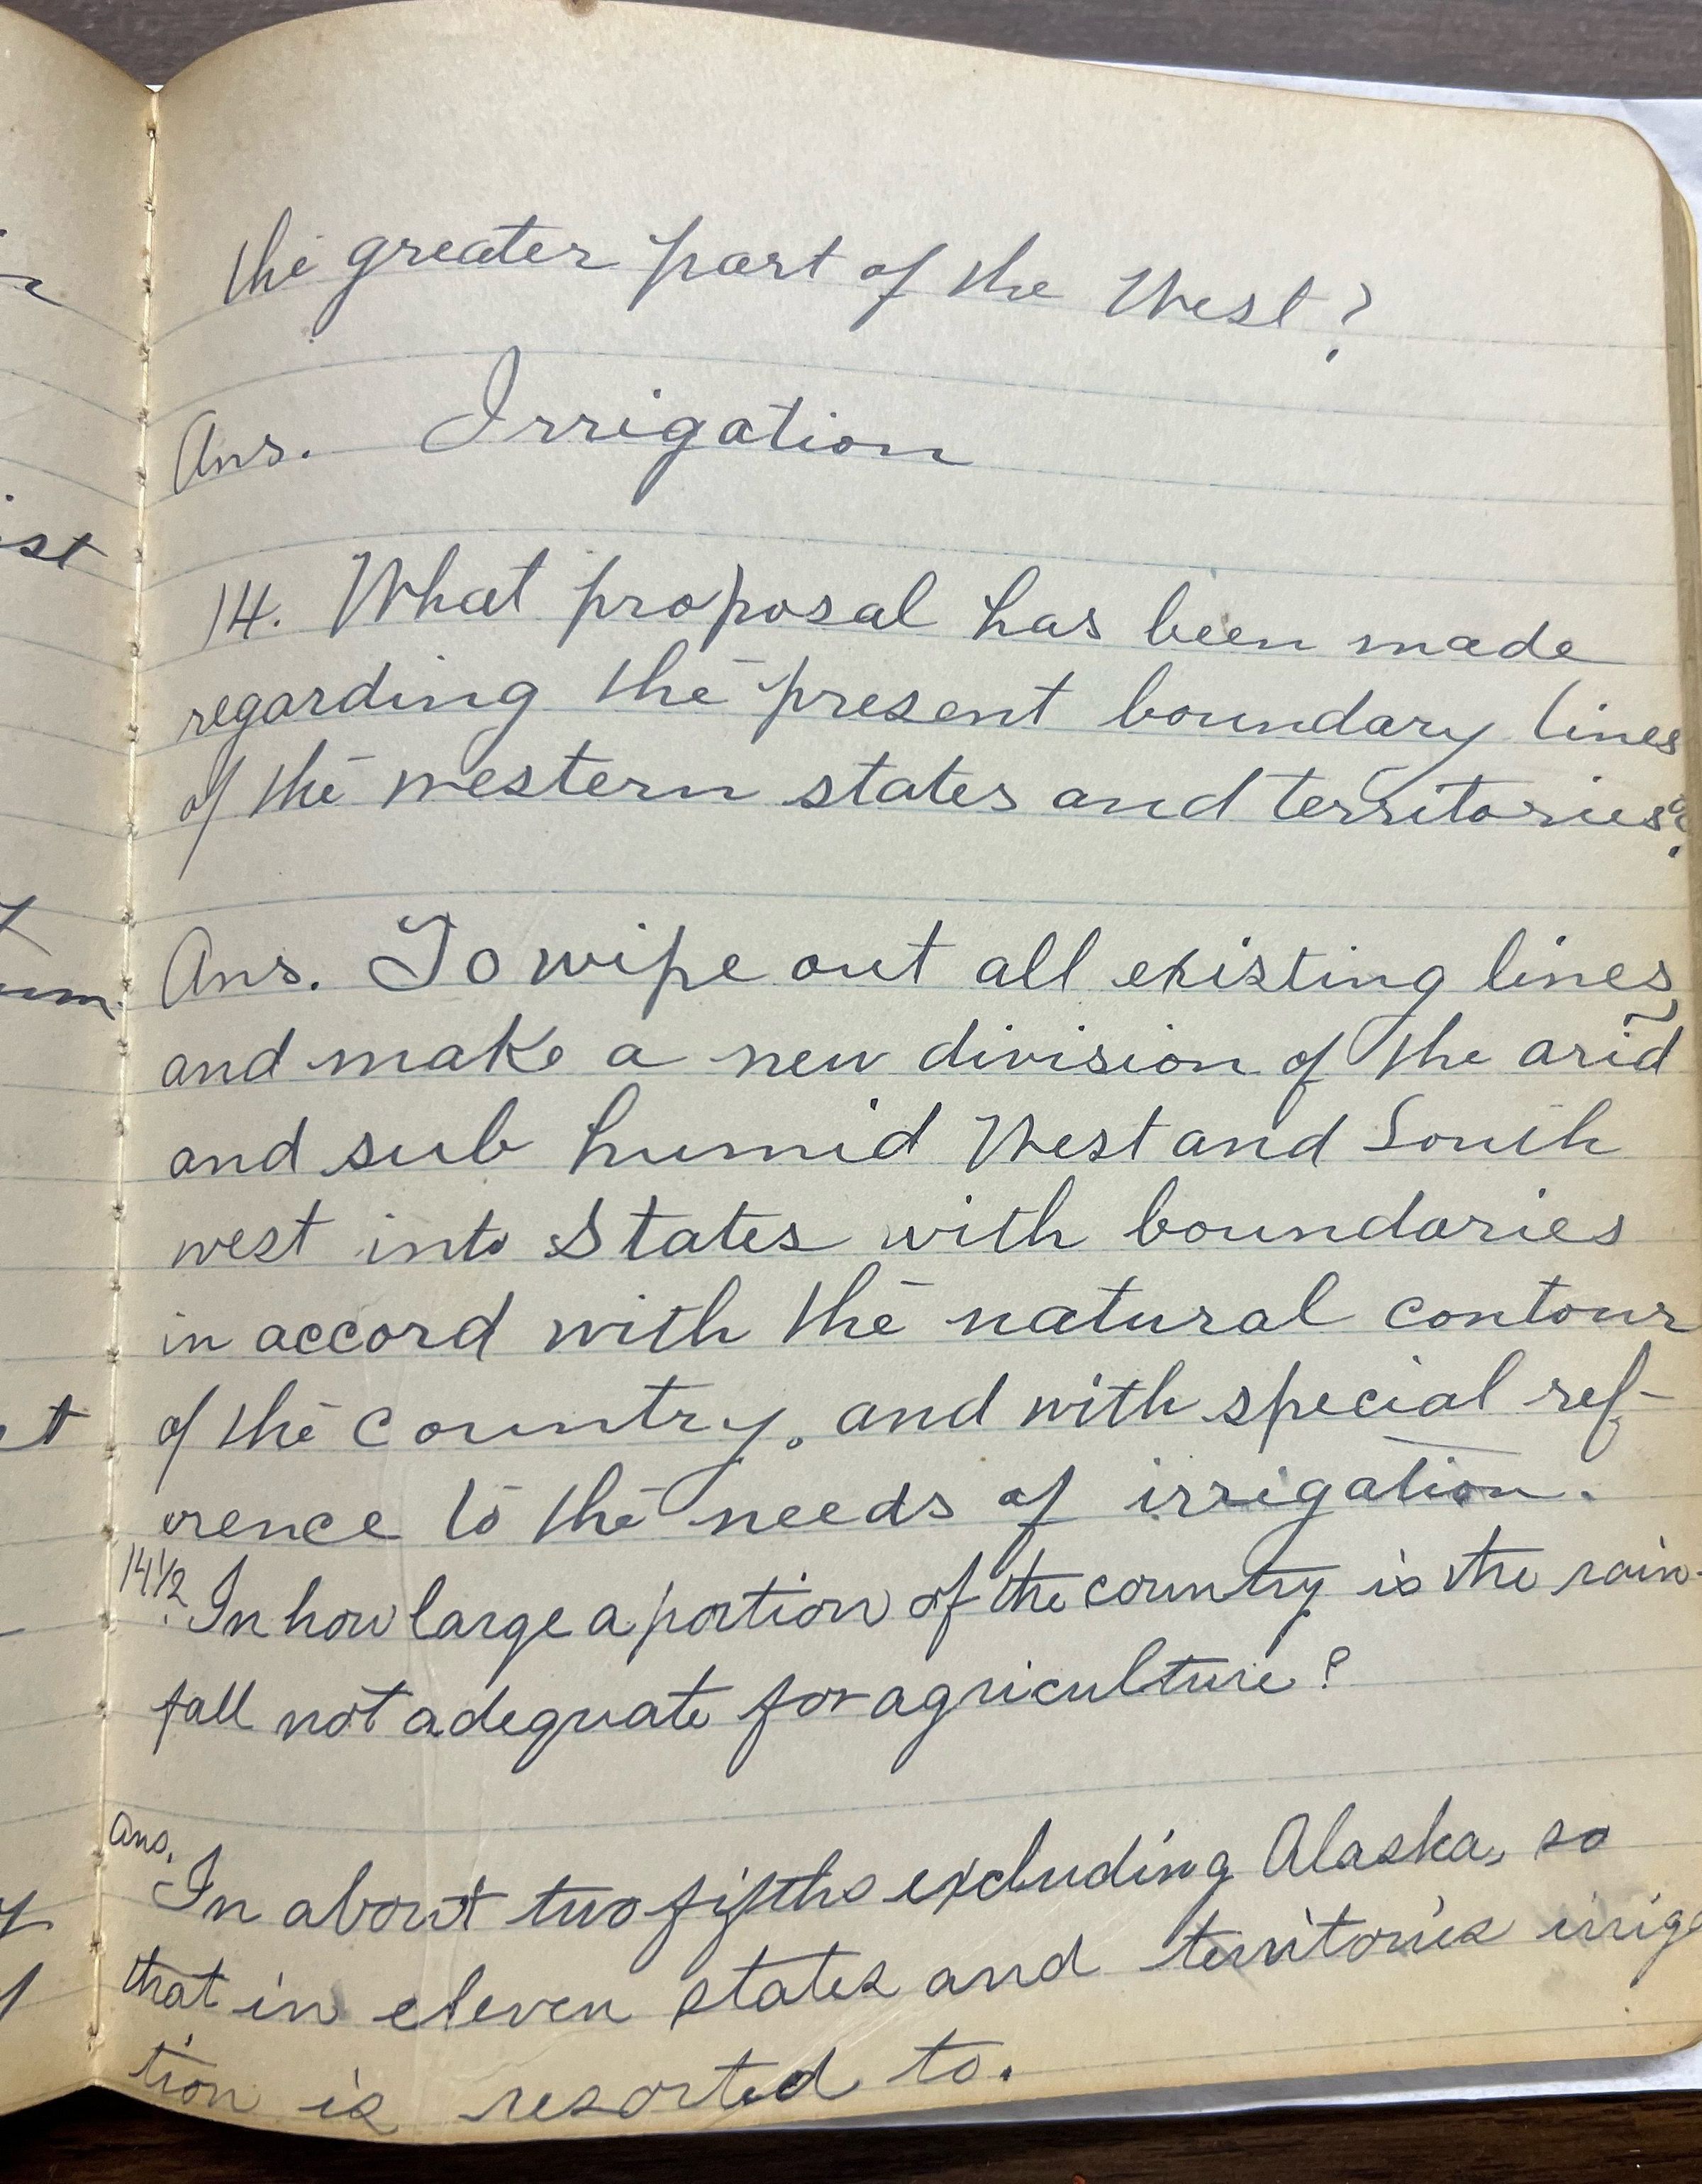 the greater part of the West?
Ans. Irrigation
14. What proposal has been made
regarding the present boundary lines
of the western states and territories?
Ans. To wipe out all existing lines,
and make a new division of the arid
and sub humid West and South
west into States with boundaries
in accord with the natural contour
of the country, and with special ref-
erence to the needs of irrigation.
14 1/2. In how large a portion of the country is the rain-
fall not adequate for agriculture?
Ans.
In about two fifths excluding Alaska, so
that in eleven states and territories irriga
tion is resorted to.